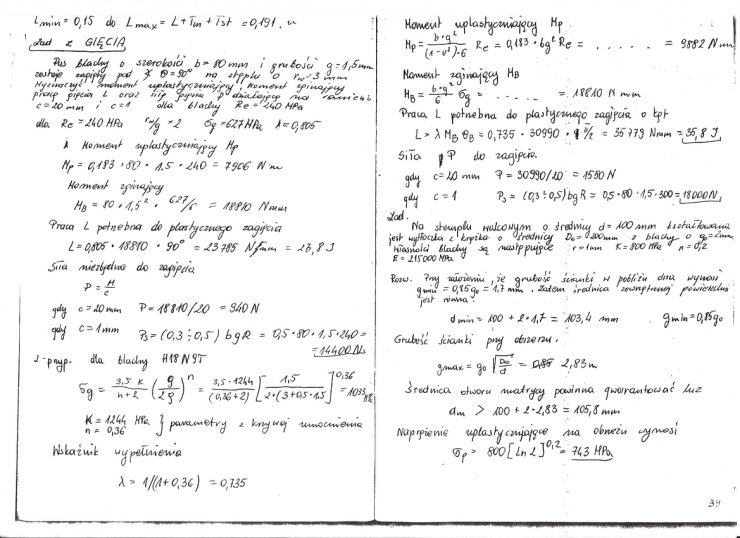 Lmin = 0,15 do Lmax = L + Tm + Tst = 0,191.
Zad z GIĘCIA
Pas blachy o szerokości b = 80 mm i grubości g = 1,5 mm
zostaje zagięty pod ∢ Θ = 90° na stęplu o rw = 3 mm
Wyznaczyć moment uplastyczniający, moment zginający
pracę gięcia L oraz siłę gięcia P działającą na ramieniu
c = 20 mm i c = 1 dla blachy Re = 240 MPa
dla Re = 240 MPa rw/g = 2 σg = 627 MPa λ = 0,805
Moment uplastyczniający Mp
Mp = 0,183 · 80 · 1,5 · 240 = 7906 N m
Moment zginający
MB = 80 · 1,5² · 627/6 = 18810 N mm
Praca L potrzebna do plastycznego zagięcia
L = 0,805 · 18810 · 90° = 23785 N/mm = 23,8 J
Siła niezbędna do zagięcia
P = M/c
gdy c = 20 mm P = 18810/20 = 940 N
gdy c = 1 mm P3 = (0,3 ÷ 0,5) b g R = 0,5 · 80 · 1,5 · 240 =
= 14400 N
2-przyp. dla blachy H18N9T
σg = 3,5 K/(n+2) (g/2ρ)^n = 3,5 · 1244/(0,36+2) [1,5/(2·(3+0,5·1,5))]^0,36 = 1033 MPa
K = 1244 MPa
n = 0,36 } parametry z krzywej umocnienia
Wskaźnik wypełnienia
λ = 1/(1+0,36) = 0,735
Moment uplastyczniający Mp
Mp = b·g²/((1-ν²)·6) Re = 0,183 · bg² Re = . . . . . . = 9882 N mm
Moment zginający MB
MB = b·g/6 σg = . . . . . . = 18810 N mm
Praca L potrzebna do plastycznego zagięcia o kąt
L = λ MB ΘB = 0,735 · 30990 · π/2 = 35779 Nmm = 35,8 J
Siła P do zagięcia.
gdy c = 20 mm P = 30990/20 = 1550 N
gdy c = 1 P3 = (0,3 ÷ 0,5) bg R = 0,5 · 80 · 1,5 · 300 = 18000 N
Zad.
Na stemplu walcowym o średnicy d = 100 mm kształtowana
jest wytłoczka z krążka o średnicy D0 = 200 mm z blachy o g0 = 2 mm
własności blachy są następujące r = 1 mm K = 800 MPa n = 0,2
E = 215000 MPa
Rozw. Przy założeniu, że grubość ścianki w pobliżu dna wynosi
gmin = 0,85 g0 = 1,7 mm. Zatem średnica zewnętrznej powierzchni
jest równa
dmin = 100 + 2 · 1,7 = 103,4 mm gmin = 0,85g0
Grubość ścianki przy obrzeżu.
gmax = g0 √(D0/d) = 2,83 m
Średnica otworu matrycy powinna gwarantować luz
dm > 100 + 2 · 2,83 = 105,8 mm
Naprężenie uplastyczniające na obrzeżu wynosi
σp = 800 [Ln 2]^0,2 = 743 MPa
34